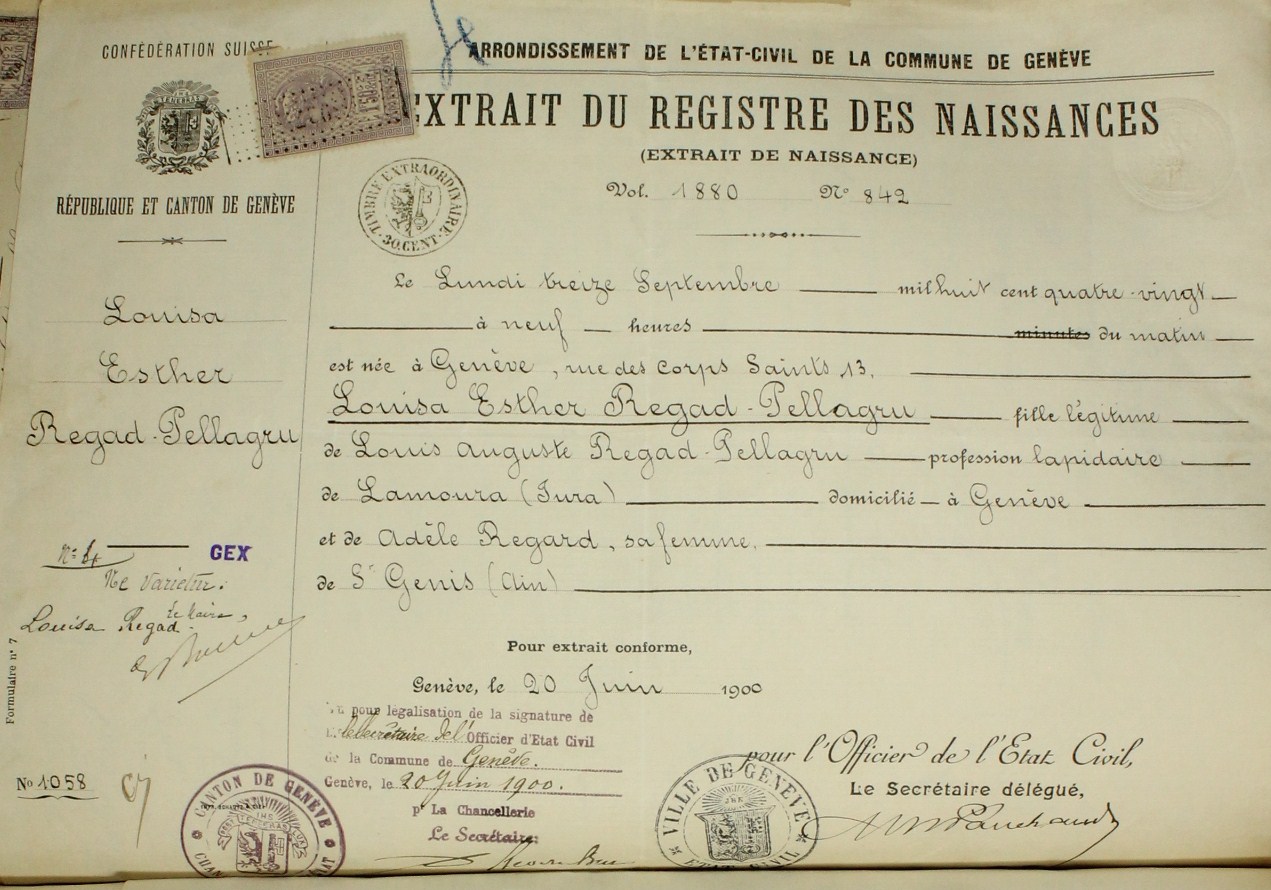 CONFÉDÉRATION SUISSE
ARRONDISSEMENT DE L'ÉTAT-CIVIL DE LA COMMUNE DE GENÈVE
EXTRAIT DU REGISTRE DES NAISSANCES
(EXTRAIT DE NAISSANCE)
Vol. 1880 N° 842
RÉPUBLIQUE ET CANTON DE GENÈVE
TIMBRE EXTRAORDINAIRE
30 CENT.
Louisa
Esther
Regad-Pellagru
Le Lundi treize Septembre mil huit cent quatre-vingt
à neuf heures minutes du matin
est née à Genève, rue des Corps Saints 13,
Louisa Esther Regad-Pellagru fille légitime
de Louis Auguste Regad-Pellagru profession lapidaire
de Lamoura (Jura) domicilié à Genève
et de Adèle Regard, sa femme,
de St Genis (Ain)
GEX
Ne Varietur.
Le Maire,
Louisa Regad
Formulaire n° 7
N° 1058
Pour extrait conforme,
Genève, le 20 Juin 1900
Vu pour légalisation de la signature de
le Secrétaire de l'Officier d'Etat Civil
de la Commune de Genève.
Genève, le 20 Juin 1900.
pr La Chancellerie
Le Secrétaire:
pour l'Officier de l'Etat Civil,
Le Secrétaire délégué,
CANTON DE GENÈVE
VILLE DE GENÈVE
ETAT CIVIL